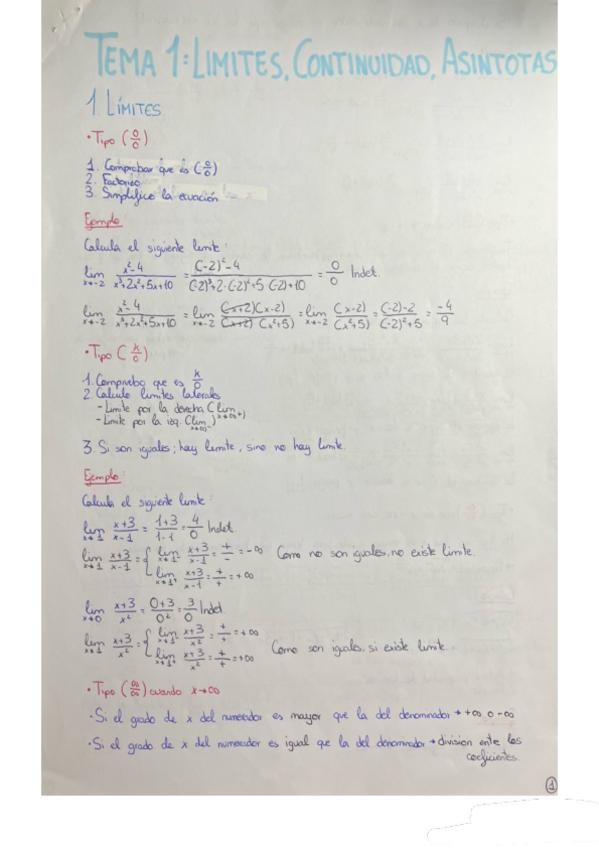 TEMA 1: LIMITES, CONTINUIDAD, ASINTOTAS
1. LÍMITES
· Tipo (0/0)
1. Comprobar que es (0/0)
2. Factorizo
3. Simplifico la ecuación
Ejemplo
Calcula el siguiente limite:
lim x→-2 x²-4 / x³+2x²+5x+10 = (-2)²-4 / (-2)³+2·(-2)²+5·(-2)+10 = 0/0 Indet.
lim x→-2 x²-4 / x³+2x²+5x+10 = lim x→-2 (x+2)(x-2) / (x+2)(x²+5) = lim x→-2 (x-2) / (x²+5) = (-2)-2 / (-2)²+5 = -4/9
· Tipo (k/0)
1. Compruebo que es k/0
2. Calculo limites laterales
- Limite por la derecha (lim
- Limite por la izq. (lim
3. Si son iguales; hay limite, sino no hay limite.
Ejemplo:
Calcula el siguiente limite:
lim x→1 x+3 / x-1 = 1+3 / 1-1 = 4/0 Indet.
lim x→1 x+3 / x-1 = { lim x→1⁻ x+3 / x-1 = +/- = -∞ Como no son iguales, no existe limite.
lim x→1⁺ x+3 / x-1 = +/+ = +∞
lim x→0 x+3 / x² = 0+3 / 0² = 3/0 Indet.
lim x→1 x+3 / x² = { lim x→1⁻ x+3 / x² = +/+ = +∞
lim x→1⁺ x+3 / x² = +/+ = +∞ Como son iguales, si existe limite.
· Tipo (∞/∞) cuando x→∞
· Si el grado de x del numerador es mayor que la del denominador → +∞ o -∞
· Si el grado de x del numerador es igual que la del denominador → division entre los
coeficientes.
1